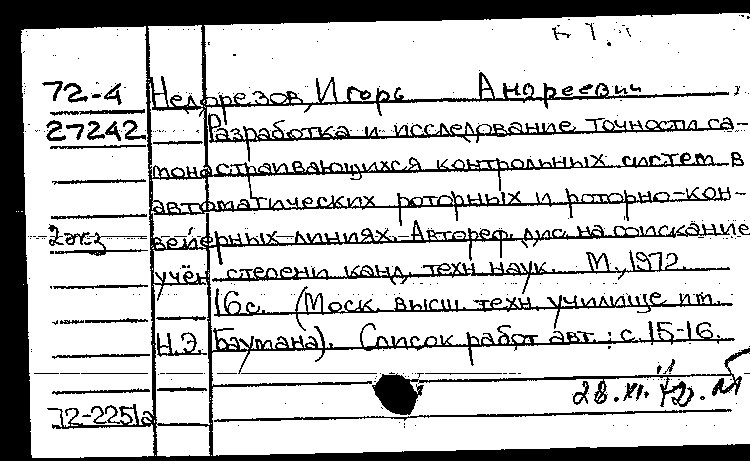 72-4 Недорезов, Игорь Андреевич
27242 Разработка и исследование точности са-
монастраивающихся контрольных систем в
автоматических роторных и роторно-кон-
2 экз вейерных линиях. Автореф. дис. на соискание
учён. степени канд. техн. наук. М., 1972.
16 с. (Моск. высш. техн. училище им.
Н.Э. Баумана). Список работ авт.: с. 15-16.
28.XI.72.
72-2251а